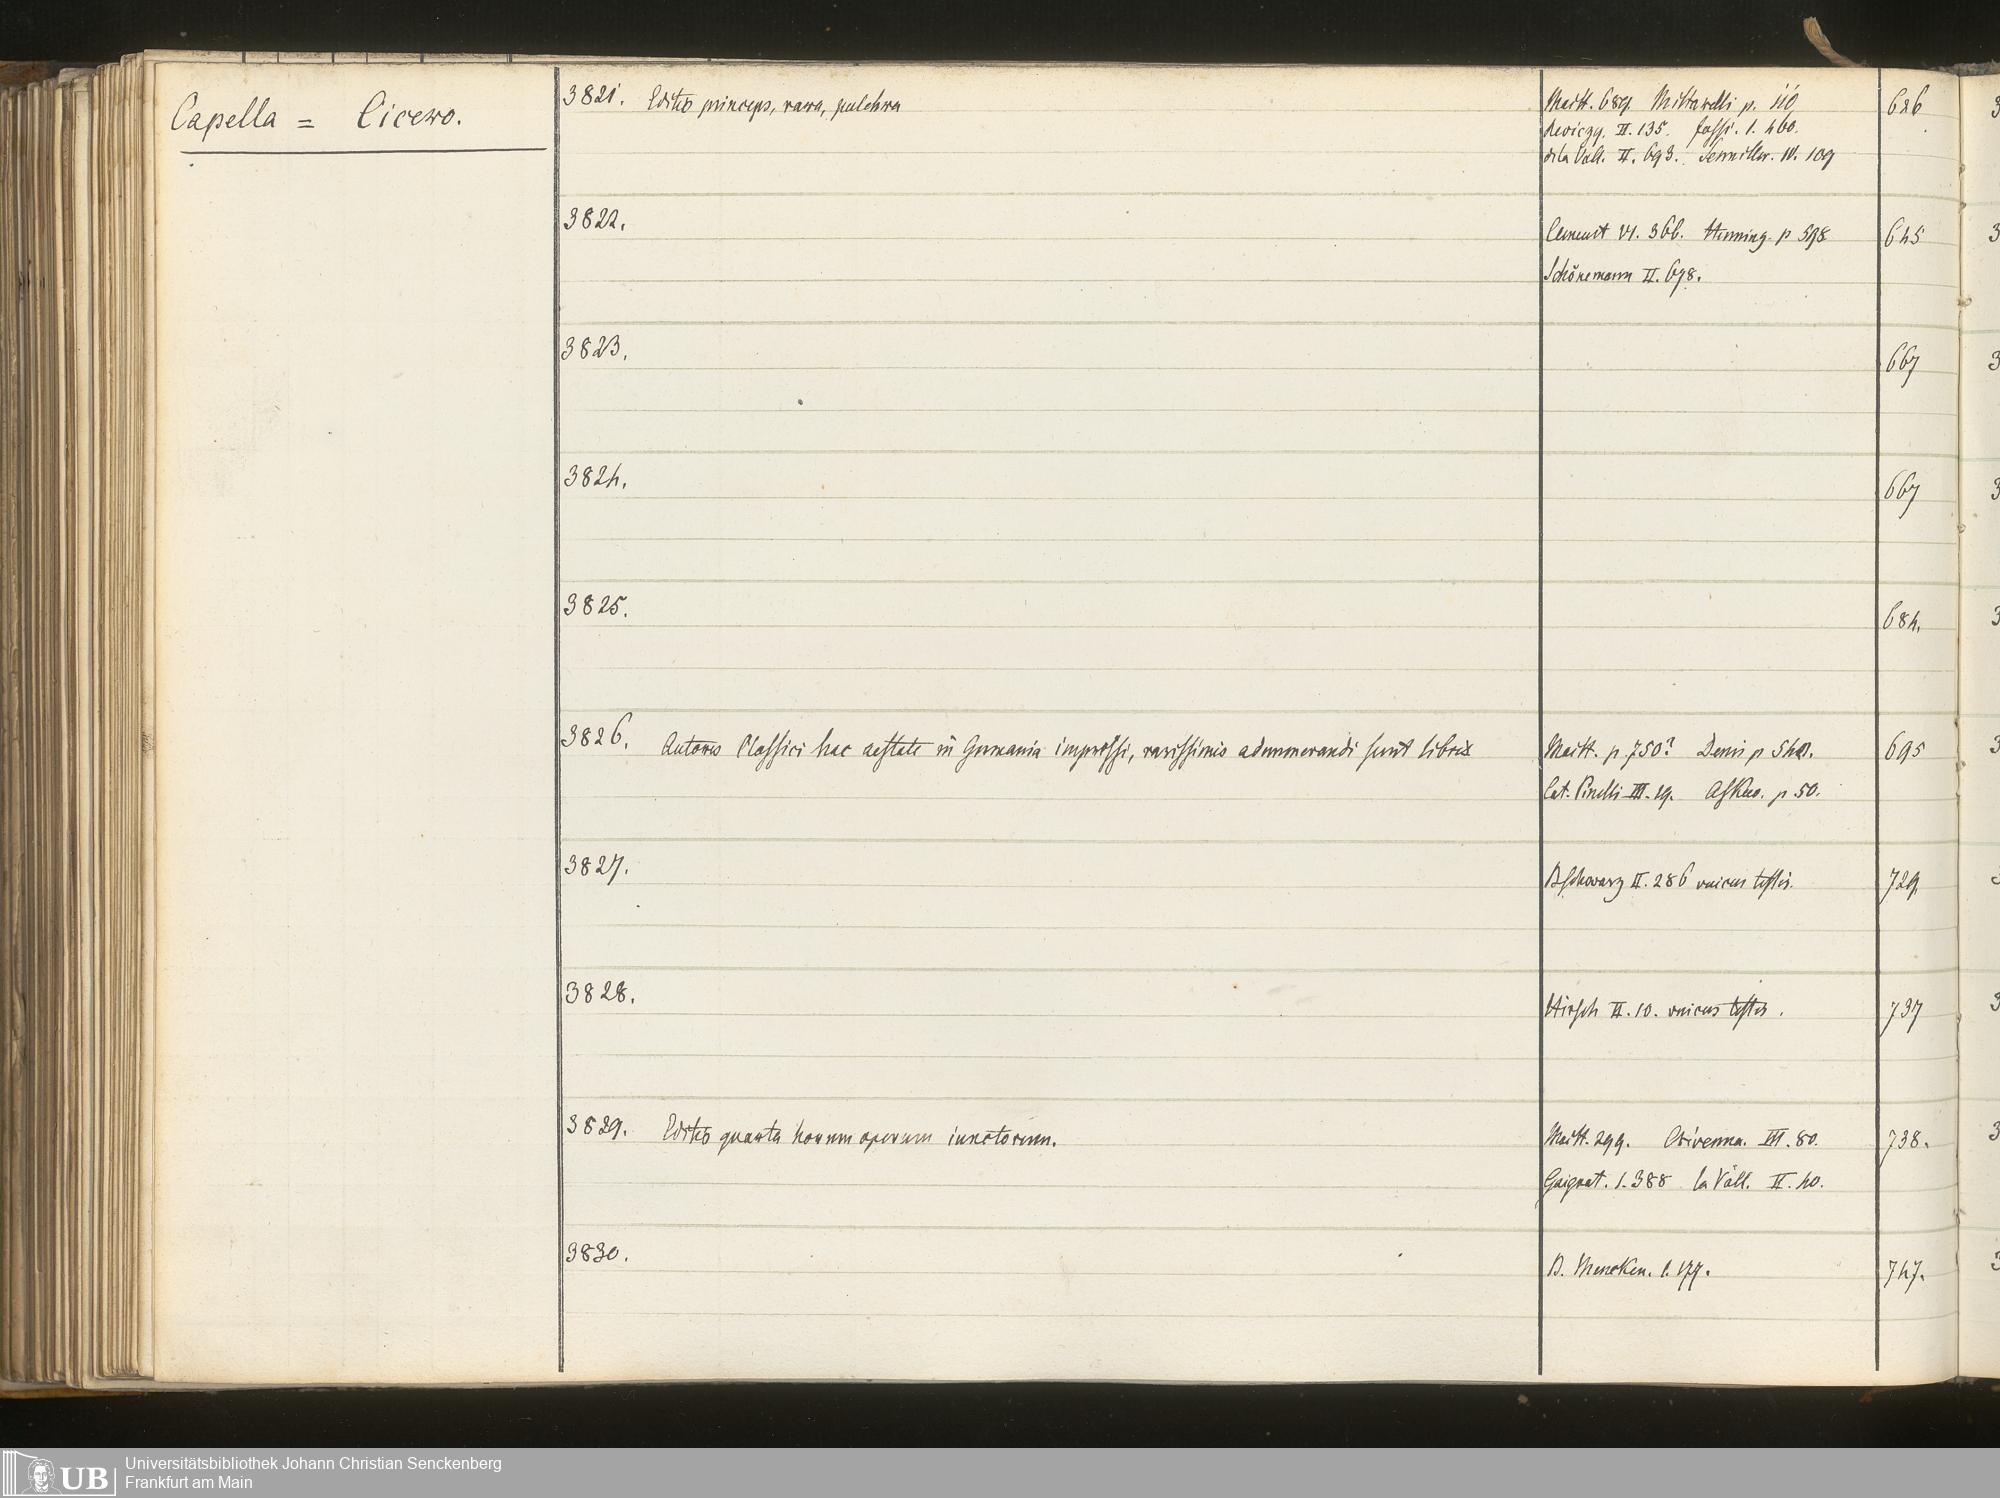 Capella = Cicero.
3821. Editio princeps, rara, pulchra
Maitt. 689. Mittarelli p. 110
Reviczg. II. 135. fossi. 1. 460.
de la Vall. II. 693. Semiller. IV. 109
626
3822.
Clement VI. 366. Henning. p 598
Schönemann II. 698.
645
3823.
667
3824.
667
3825.
684.
3826. Autores Classici hac aestate in Germania impressi, rarissimis adnumerandi sunt libris
Maitt. p 750? Denis p 540.
Cat. Pinelli III. 19. Askew. p 50.
695
3827.
B Schwarz II. 286 unicus testis.
729
3828.
Hirsch II. 10. unicus testis.
737
3829. Editio quarta horum operum iunctorum.
Maitt. 299. Crivenna. III. 80.
Gaignat. 1. 388 la Vall. II. 40.
738.
3830.
B. Mencken. 1. 177.
747.
UB
Universitätsbibliothek Johann Christian Senckenberg
Frankfurt am Main